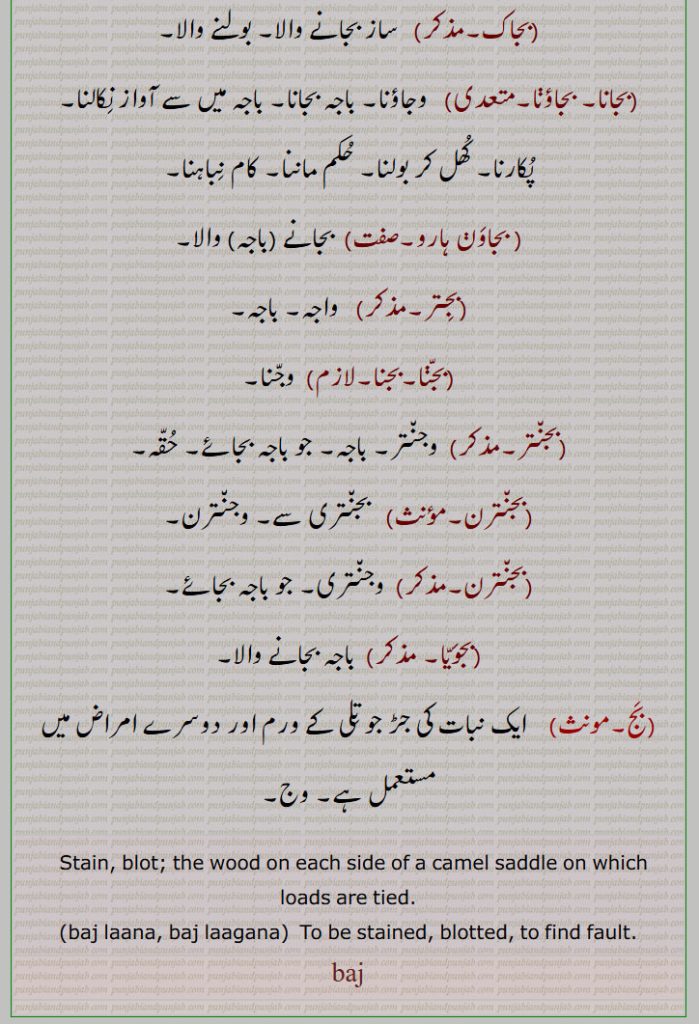 (بجاک۔مذکر) ساز بجانے والا۔ بولنے والا۔
(بجانا۔ بجاؤݨا۔متعدی) وجاؤنا۔ باجہ بجانا۔ باجہ میں سے آواز نِکالنا۔
پُکارنا۔ کُھل کر بولنا۔ حُکم ماننا۔ کام نِباہنا۔
(بجاؤݨ ہارو۔صفت) بجانے (باجہ) والا۔
(بجِتر۔مذکر) واجہ۔ باجہ۔
(بجّݨا۔بجنا۔لازم) وجّنا۔
(بجنّتر۔مذکر) وجنّتر۔ باجہ۔ جو باجہ بجائے۔ حُقّہ۔
(بجنّترن۔مؤنث) بجنّتری سے۔ وجنّترن۔
(بجنّترن۔مذکر) وجنّتری۔ جو باجہ بجائے۔
(بجوَیّا۔ مذکر) باجہ بجانے والا۔
(بَج۔مونث) ایک نبات کی جڑ جو تِلی کے ورم اور دوسرے امراض میں
مستعمل ہے۔ وج۔
Stain, blot; the wood on each side of a camel saddle on which
loads are tied.
(baj laana, baj laagana) To be stained, blotted, to find fault.
baj